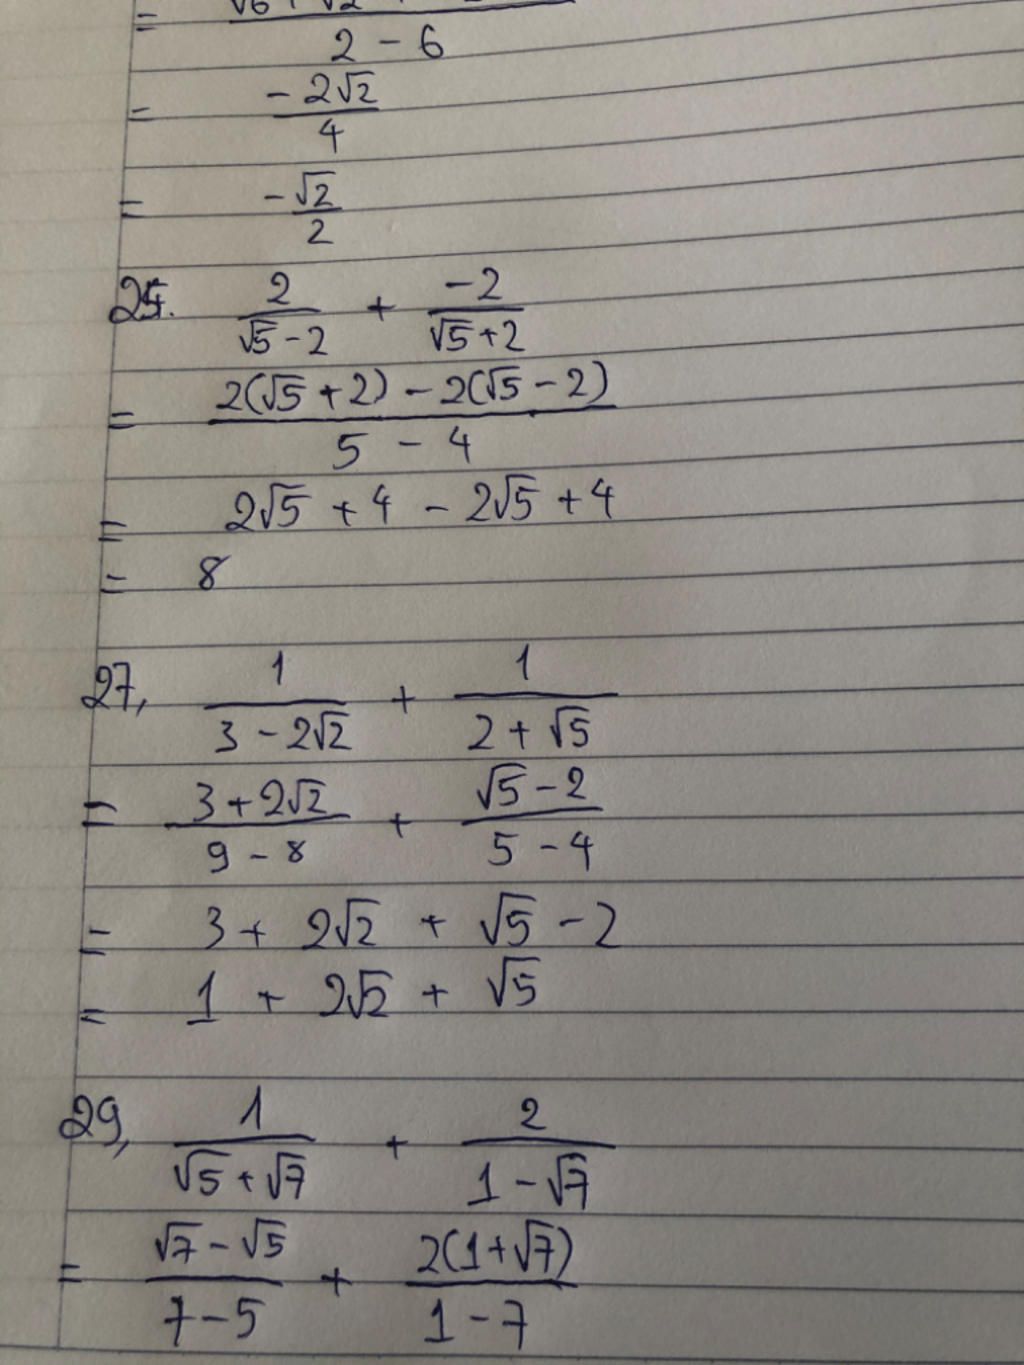 = / (2 - 6)
= (-2√2) / 4
= (-√2) / 2
25. 2 / (√5 - 2) + (-2) / (√5 + 2)
= (2(√5 + 2) - 2(√5 - 2)) / (5 - 4)
= 2√5 + 4 - 2√5 + 4
= 8
27, 1 / (3 - 2√2) + 1 / (2 + √5)
= (3 + 2√2) / (9 - 8) + (√5 - 2) / (5 - 4)
= 3 + 2√2 + √5 - 2
= 1 + 2√2 + √5
29, 1 / (√5 + √7) + 2 / (1 - √7)
= (√7 - √5) / (7 - 5) + (2(1 + √7)) / (1 - 7)